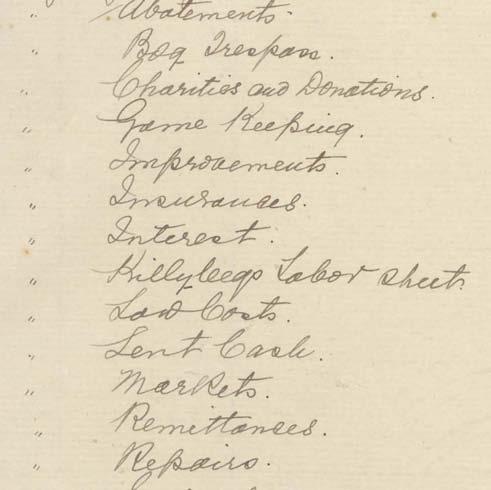 Abatements.
Bog Trespass.
" Charities and Donations.
" Game Keeping.
" Improvements.
" Insurances.
" Interest.
" Killybegs Labor Sheet
" Law Costs.
" Lent Cash.
" Markets.
" Remittances.
" Repairs.